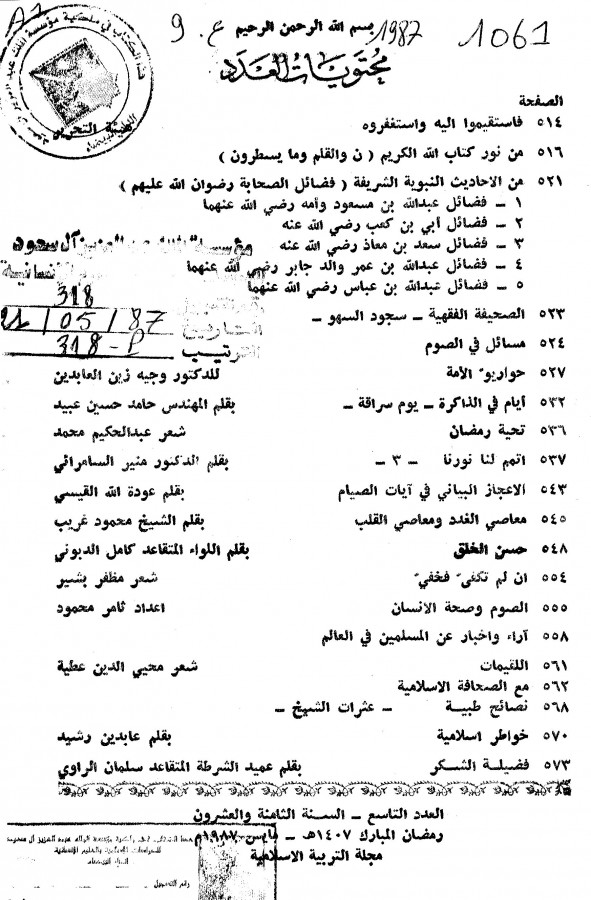 A1
ع. 9 1987 1061
بسم الله الرحمن الرحيم
محتويات العدد
الصفحة
٥١٤ فاستقيموا اليه واستغفروه هيئة التحرير
٥١٦ من نور كتاب الله الكريم ( ن والقلم وما يسطرون )
٥٢١ من الاحاديث النبوية الشريفة ( فضائل الصحابة رضوان الله عليهم )
١ - فضائل عبدالله بن مسعود وأمه رضي الله عنهما
٢ - فضائل أبي بن كعب رضي الله عنه
٣ - فضائل سعد بن معاذ رضي الله عنه
٤ - فضائل عبدالله بن عمر ووالد جابر رضي الله عنهما
٥ - فضائل عبدالله بن عباس رضي الله عنهما
آل سعود
318
التاريخ 21/05/87
الترتيب 318-P
٥٢٣ الصحيفة الفقهية - سجود السهو -
٥٢٤ مسائل في الصوم
٥٢٧ حواريو الأمة للدكتور وجيه زين العابدين
٥٣٢ أيام في الذاكرة - يوم سراقة - بقلم المهندس حامد حسين عبيد
٥٣٦ تحية رمضان شعر عبدالحكيم محمد
٥٣٧ اتمم لنا نورنا - ٣ - بقلم الدكتور منير السامرائي
٥٤٣ الاعجاز البياني في آيات الصيام بقلم عودة الله القيسي
٥٤٥ معاصي الغدد ومعاصي القلب بقلم الشيخ محمود غريب
٥٤٨ حسن الخلق بقلم اللواء المتقاعد كامل الدبوني
٥٥٤ ان لم تكفي فخفي شعر مظفر بشير
٥٥٥ الصوم وصحة الانسان اعداد ثامر محمود
٥٥٨ آراء واخبار عن المسلمين في العالم
٥٦١ اللقيمات شعر محيي الدين عطية
٥٦٢ مع الصحافة الاسلامية
٥٦٨ نصائح طبية - عثرات الشيخ -
٥٧٠ خواطر اسلامية بقلم عابدين رشيد
٥٧٣ فضيلة الشكر بقلم عميد الشرطة المتقاعد سلمان الراوي
العدد التاسع - السنة الثامنة والعشرون
رمضان المبارك ١٤٠٧هـ - مايس ١٩٨٧م
مجلة التربية الاسلامية
رقم التسجيل